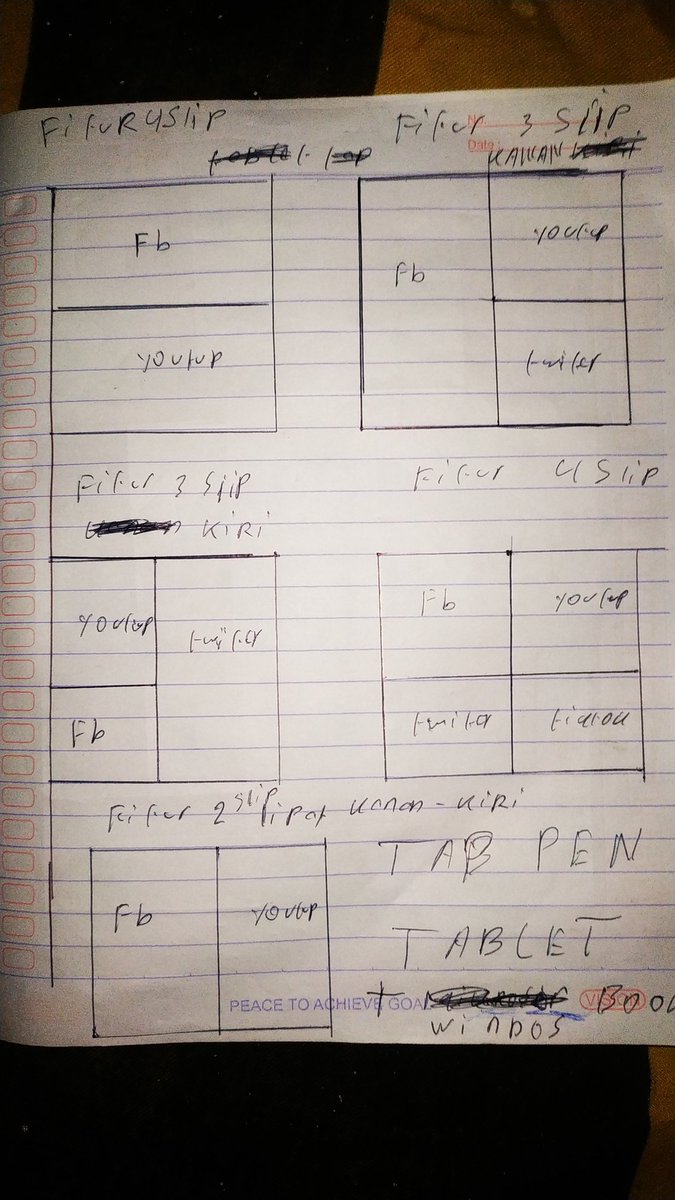 Fitur 4 Slip
Fb
youtup
Fitur 3 Slip
Date
KANAN
Fb
youtup
twiter
Fitur 3 Slip
KIRI
youtup
twiter
Fb
Fitur 4 Slip
Fb
youtup
twiter
Fitur 2 Slip lipat Kanan-Kiri
Fb
youtup
TAB PEN
TABLET
+
WINDOS
PEACE TO ACHIEVE GOAL
VISION